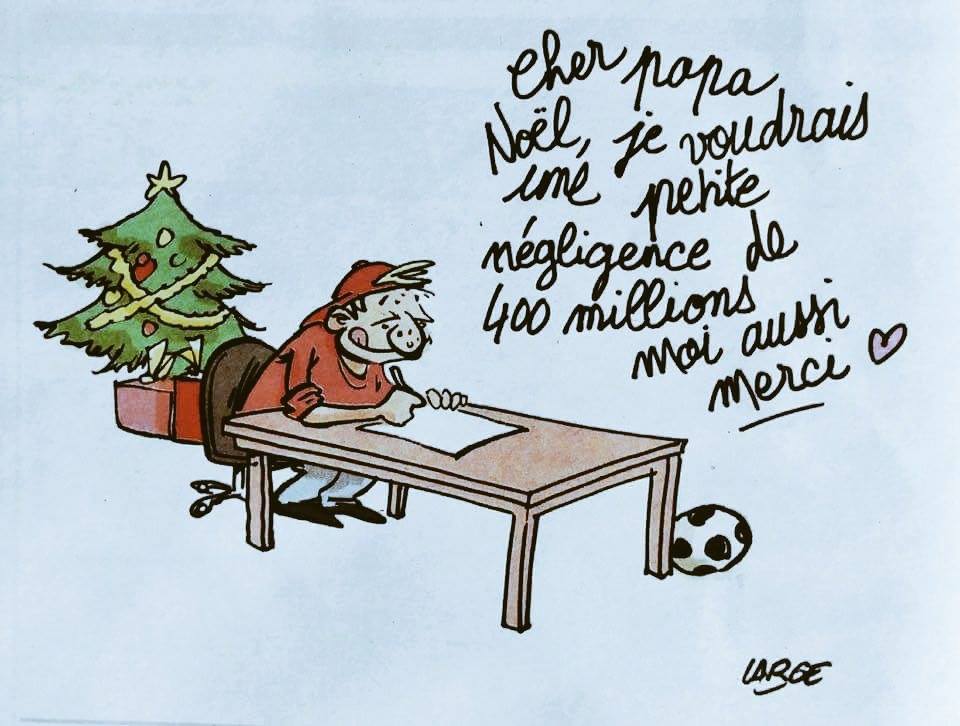 Cher papa
Noël, je voudrais
une petite
négligence de
400 millions
moi aussi
merci
LARGE